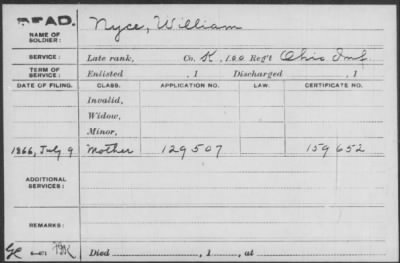 DEAD.
NAME OF SOLDIER: Nyce, William
SERVICE: Late rank, Co. K, 100 Reg't Ohio Inf.
TERM OF SERVICE: Enlisted , 1 Discharged , 1
DATE OF FILING. CLASS. APPLICATION NO. LAW. CERTIFICATE NO.
Invalid,
Widow,
Minor,
1866, July 9 Mother 129507 159652
ADDITIONAL SERVICES:
REMARKS:
6-071
Died , 1 , at